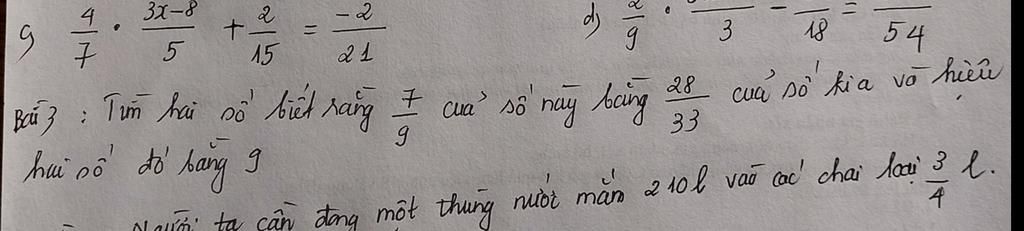 c) 4/7 · (3x-8)/5 + 2/15 = -2/21
d) 2/9 · /3 - /18 = /54
Bài 3 : Tìm hai số biết rằng 7/9 của số này bằng 28/33 của số kia và hiệu
hai số đó bằng 9
Người ta cần đóng một thùng nước mắm 210l vào các chai loại 3/4 l.